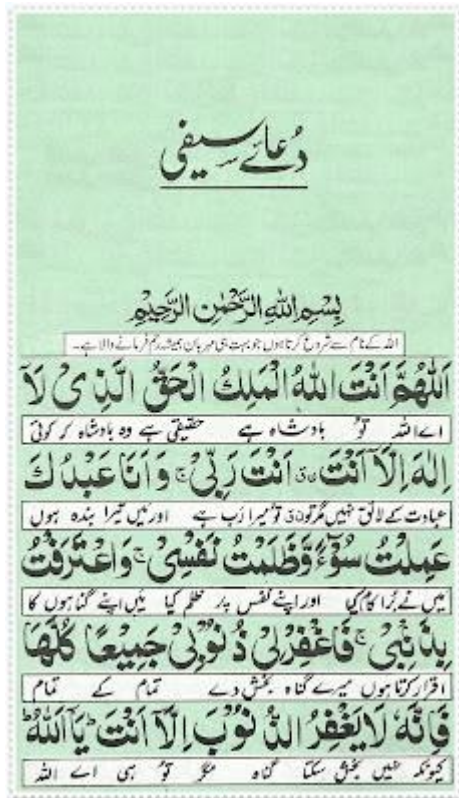 دُعائے سیفی
بِسْمِ اللهِ الرَّحْمٰنِ الرَّحِيْمِ
اللہ کے نام سے شروع کرتا ہوں جو بہت ہی مہربان ہمیشہ رحم فرمانے والا ہے۔
اَللّٰهُمَّ اَنْتَ اللهُ الْمَلِكُ الْحَقُّ الَّذِىْ لَآ
اے اللہ تُو بادشاہ ہے حقیقی ہے وہ بادشاہ کہ کوئی
اِلٰهَ اِلَّآ اَنْتَ اَنْتَ رَبِّىْ ج وَاَنَا عَبْدُكَ
عبادت کے لائق نہیں مگر تو تو میرا رب ہے اور میں تیرا بندہ ہوں
عَمِلْتُ سُوْٓءًا وَّظَلَمْتُ نَفْسِىْ ج وَاعْتَرَفْتُ
میں نے بُرا کام کیا اور اپنے نفس پر ظلم کیا میں اپنے گناہوں کا
بِذَنْبِىْ ج فَاغْفِرْلِىْ ذُنُوْبِىْ جَمِيْعًا كُلَّهَا
اقرار کرتا ہوں میرے گناہ بخش دے تمام کے تمام
فَاِنَّهٗ لَا يَغْفِرُ الذُّنُوْبَ اِلَّآ اَنْتَ ط يَآ اَللهُ ط
کیونکہ نہیں بخش سکتا گناہ مگر تُو ہی اے اللہ